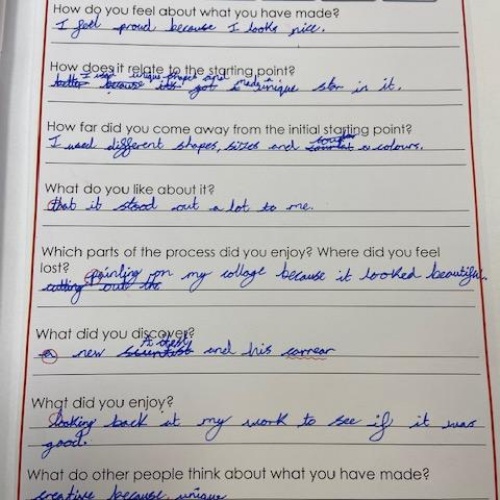 How do you feel about what you have made?
I feel proud because I looks nice.
How does it relate to the starting point?
I used unique shapes and made
better because its got unique star in it.
How far did you come away from the initial starting point?
I used different shapes, sizes and colours.
What do you like about it?
that it stood out a lot to me.
Which parts of the process did you enjoy? Where did you feel
lost? painting on my collage because it looked beautiful
cutting out the
What did you discover?
a new scientist and his carrear
What did you enjoy?
looking back at my work to see if it was
good.
What do other people think about what you have made?
creative because unique